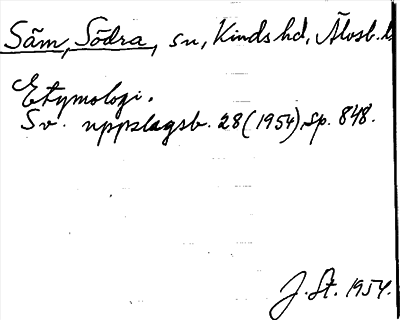 Säm, Södra, sn, Kinds hd, Älvsb. l
Etymologi.
Sv. uppslagsb. 28 (1954), sp. 848.
J. St. 1954.